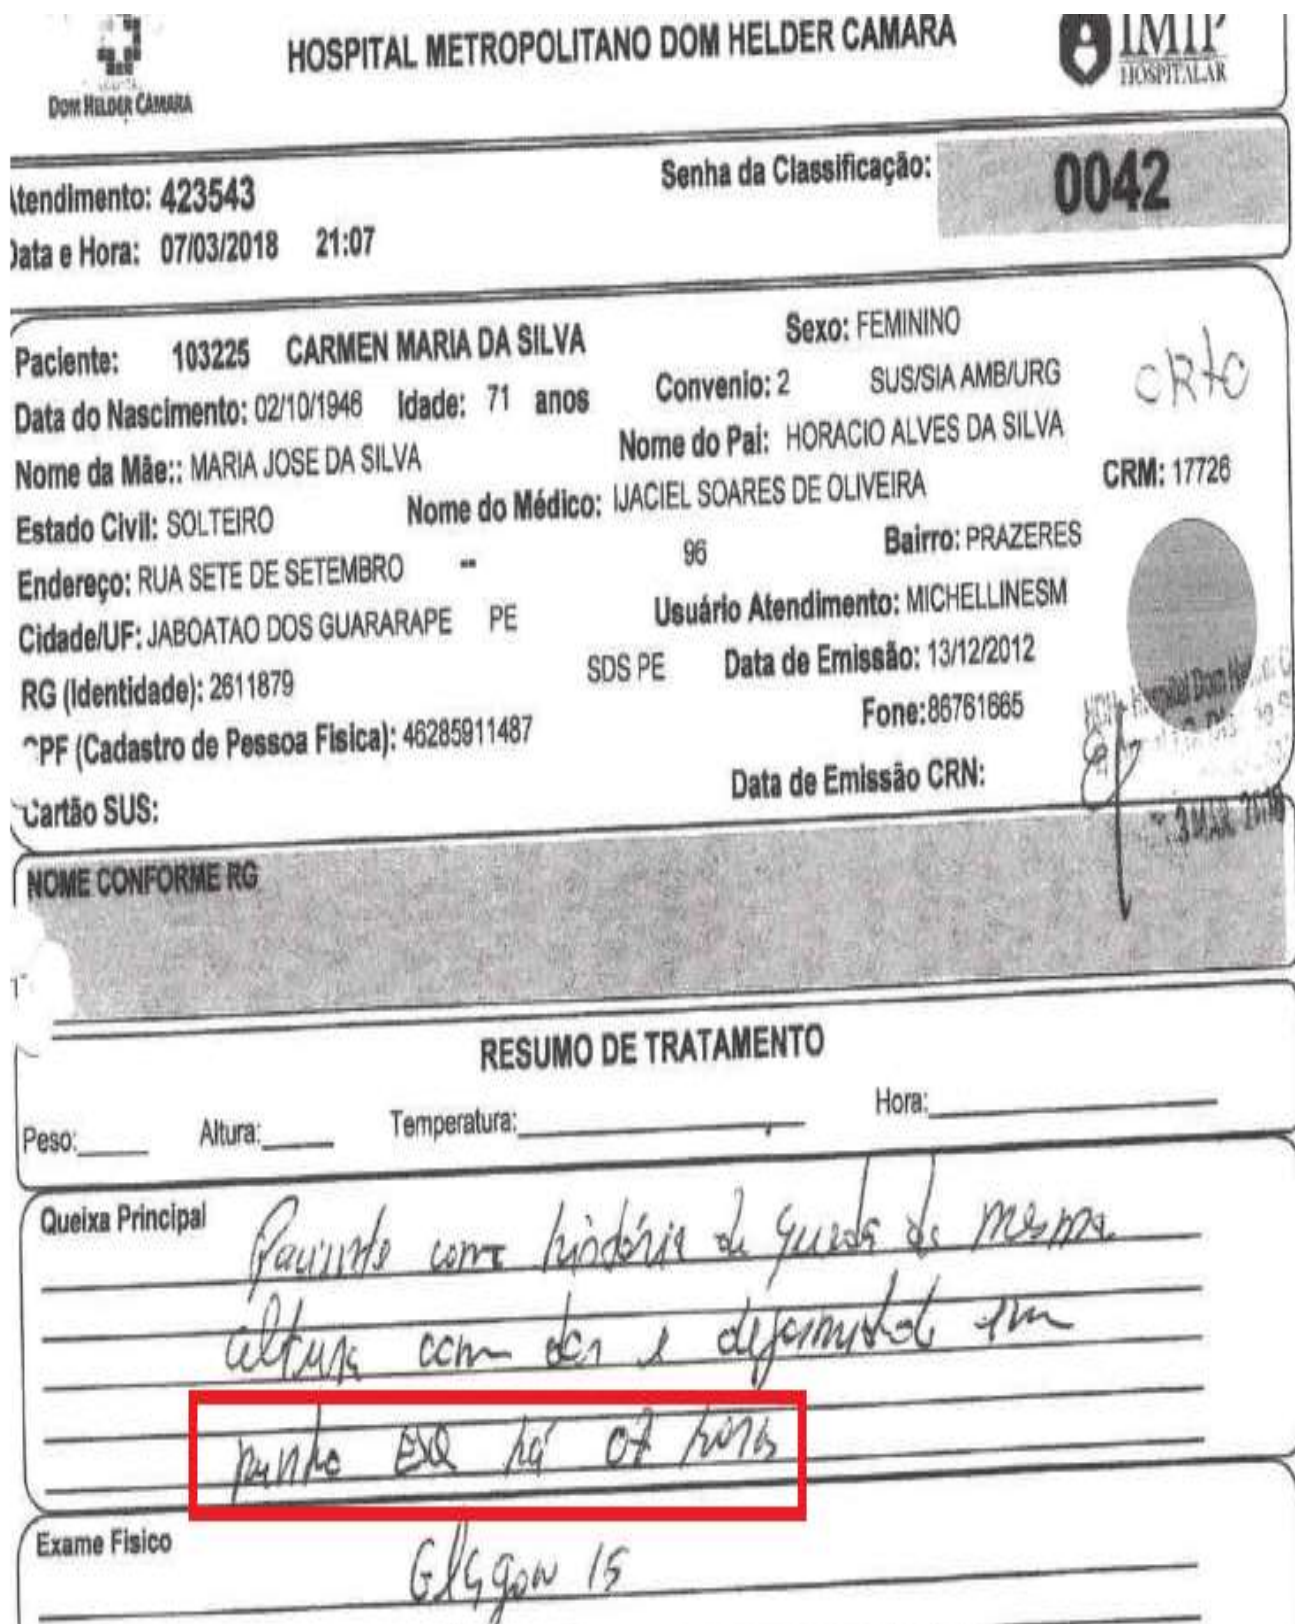 HOSPITAL METROPOLITANO DOM HELDER CAMARA
IMIP
HOSPITALAR
DOM HELDER CÂMARA
Atendimento: 423543
Senha da Classificação: 0042
Data e Hora: 07/03/2018 21:07
Paciente: 103225 CARMEN MARIA DA SILVA Sexo: FEMININO
Data do Nascimento: 02/10/1946 Idade: 71 anos Convenio: 2 SUS/SIA AMB/URG
ORTO
Nome da Mãe:: MARIA JOSE DA SILVA Nome do Pai: HORACIO ALVES DA SILVA
Estado Civil: SOLTEIRO Nome do Médico: IJACIEL SOARES DE OLIVEIRA CRM: 17726
Endereço: RUA SETE DE SETEMBRO -- 96 Bairro: PRAZERES
Cidade/UF: JABOATAO DOS GUARARAPE PE Usuário Atendimento: MICHELLINESM
RG (Identidade): 2611879 SDS PE Data de Emissão: 13/12/2012
CPF (Cadastro de Pessoa Fisica): 46285911487 Fone:86761665
Cartão SUS: Data de Emissão CRN:
NOME CONFORME RG
RESUMO DE TRATAMENTO
Peso: Altura: Temperatura: Hora:
Queixa Principal
Paciente com história de queda da mesma
altura com dor e deformidade em
punho ESQ há 07 horas
Exame Fisico
Glasgow 15